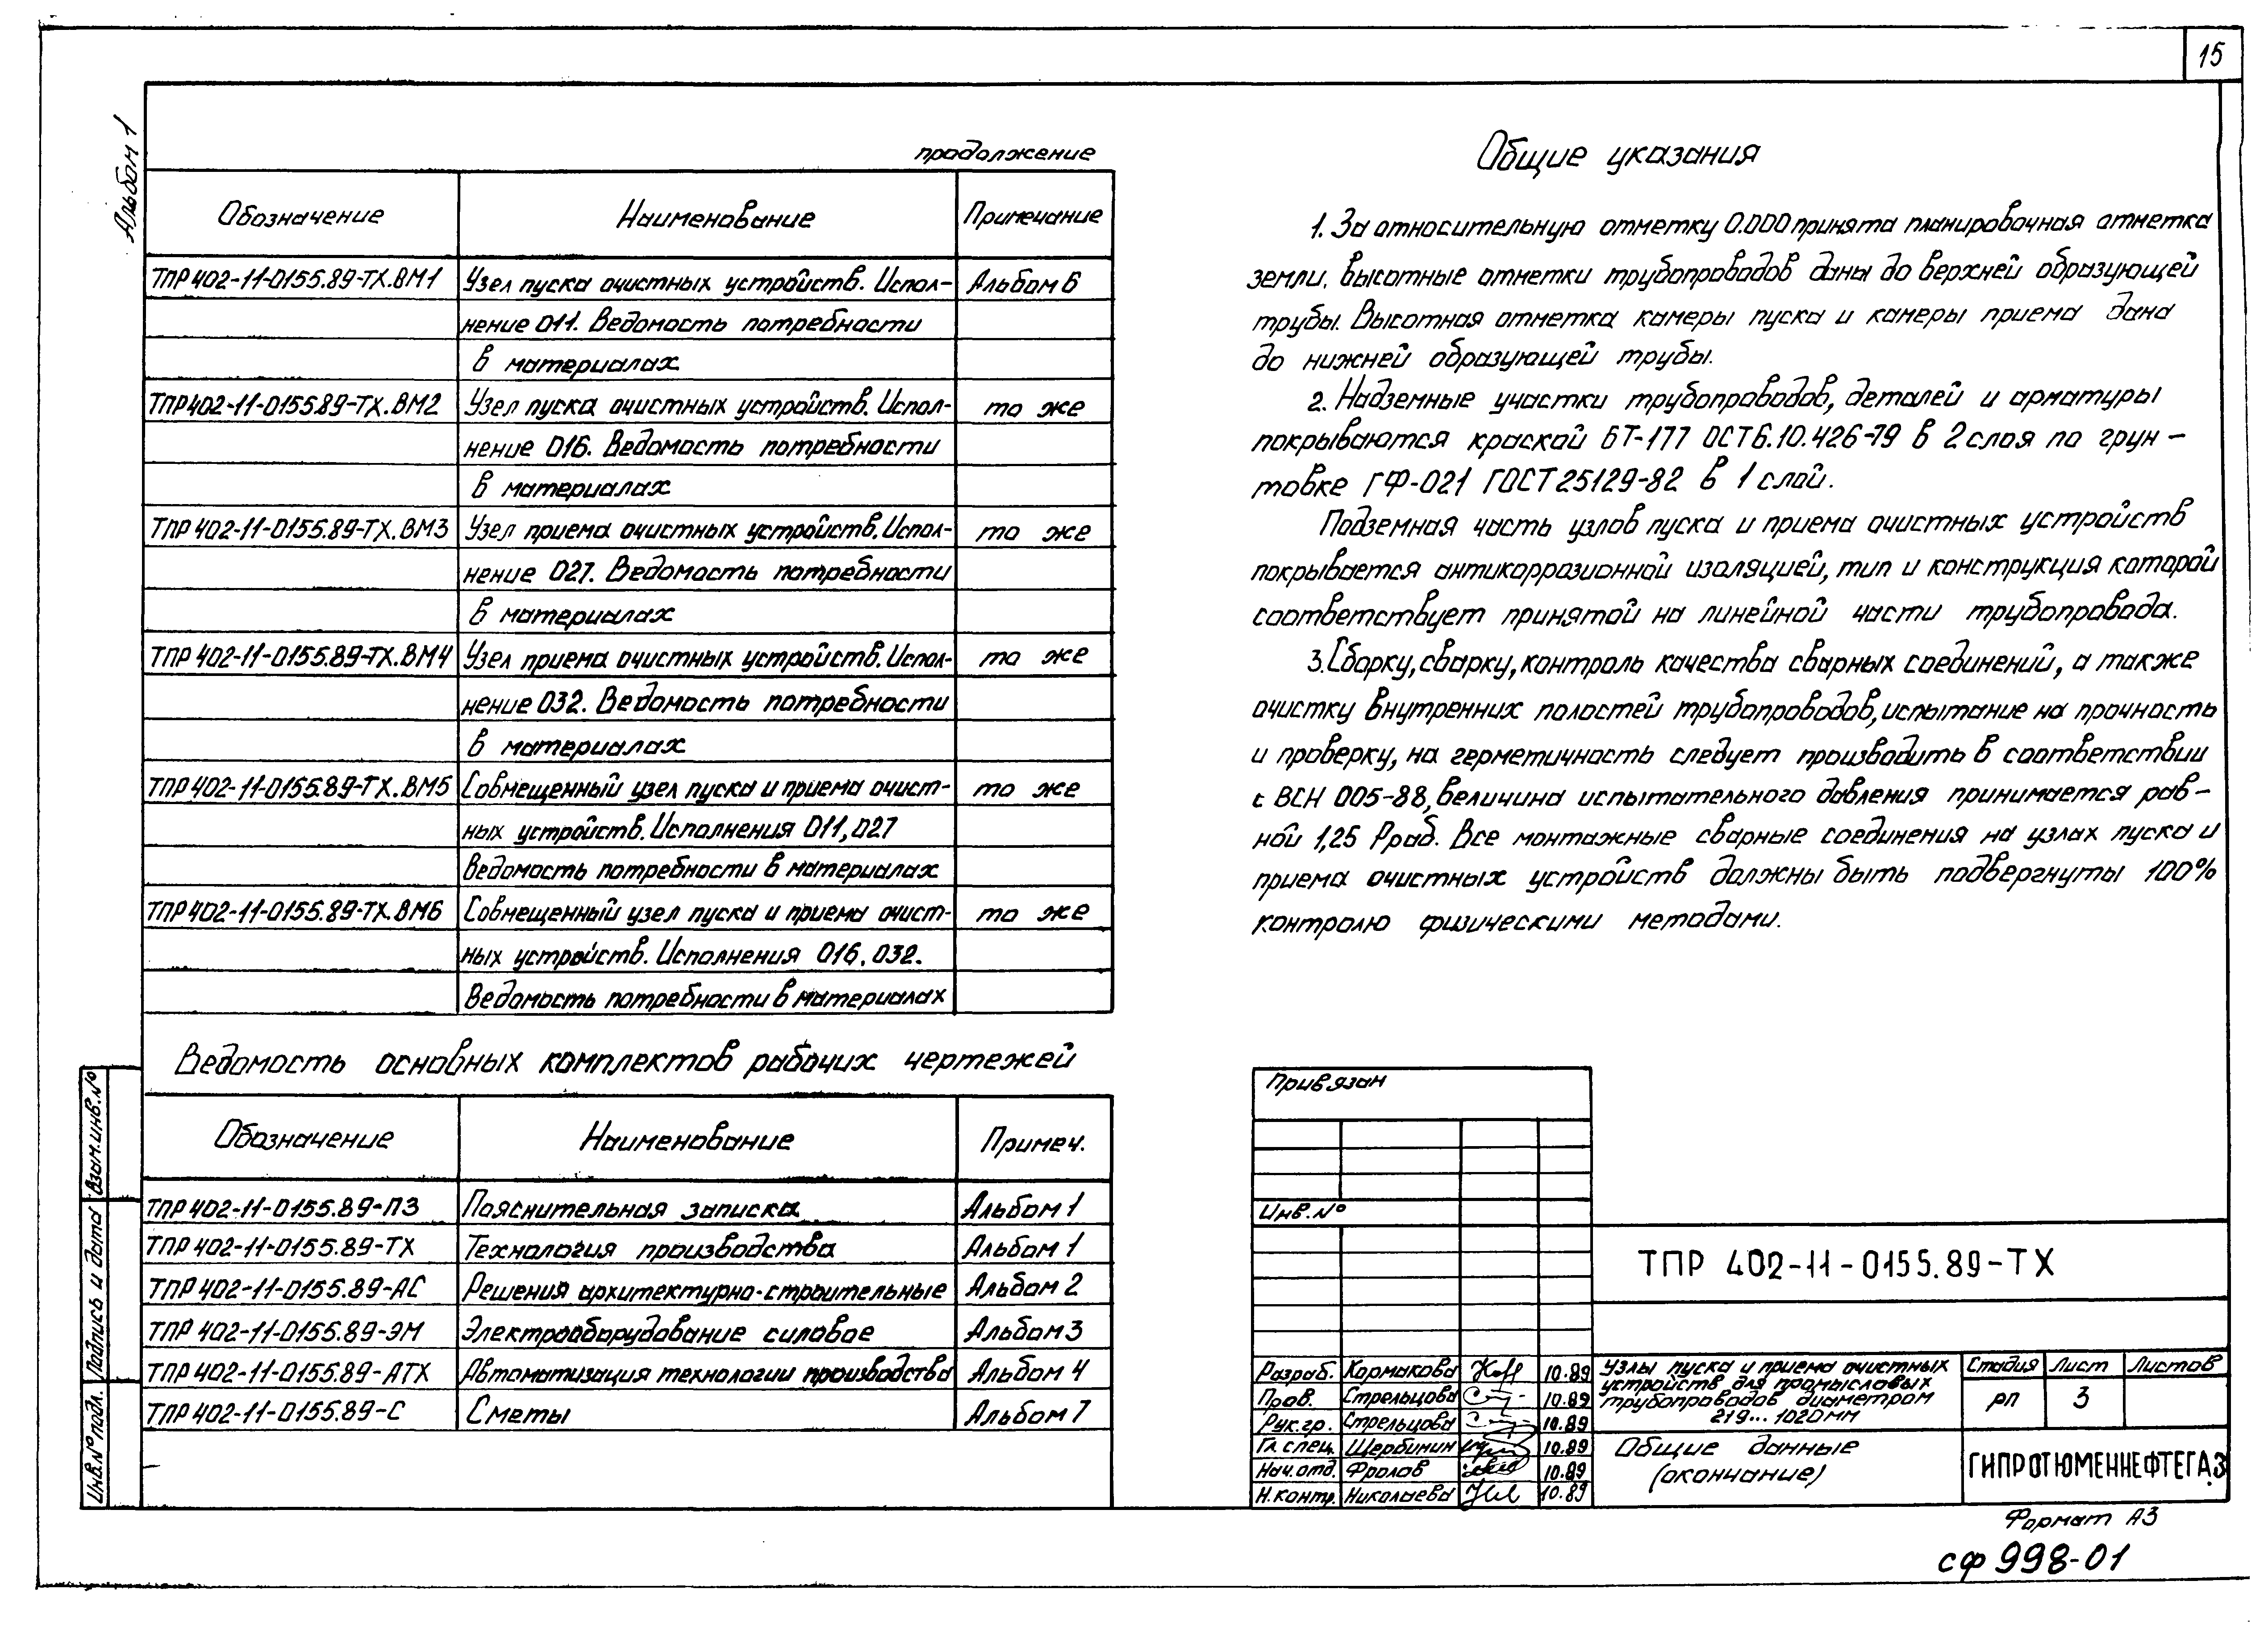 15
Альбом 1
продолжение
Обозначение Наименование Примечание
ТПР 402-11-0155.89-ТХ.ВМ1 Узел пуска очистных устройств. Испол- Альбом 6
нение 011. Ведомость потребности
в материалах
ТПР 402-11-0155.89-ТХ.ВМ2 Узел пуска очистных устройств. Испол- то же
нение 016. Ведомость потребности
в материалах
ТПР 402-11-0155.89-ТХ.ВМ3 Узел приема очистных устройств. Испол- то же
нение 027. Ведомость потребности
в материалах
ТПР 402-11-0155.89-ТХ.ВМ4 Узел приема очистных устройств. Испол- то же
нение 032. Ведомость потребности
в материалах
ТПР 402-11-0155.89-ТХ.ВМ5 Совмещенный узел пуска и приема очист- то же
ных устройств. Исполнения 011, 027
Ведомость потребности в материалах
ТПР 402-11-0155.89-ТХ.ВМ6 Совмещенный узел пуска и приема очист- то же
ных устройств. Исполнения 016, 032.
Ведомость потребности в материалах
Ведомость основных комплектов рабочих чертежей
Обозначение Наименование Примеч.
ТПР 402-11-0155.89-ПЗ Пояснительная записка Альбом 1
ТПР 402-11-0155.89-ТХ Технология производства Альбом 1
ТПР 402-11-0155.89-АС Решения архитектурно-строительные Альбом 2
ТПР 402-11-0155.89-ЭМ Электрооборудование силовое Альбом 3
ТПР 402-11-0155.89-АТХ Автоматизация технологии производства Альбом 4
ТПР 402-11-0155.89-С Сметы Альбом 7
Взам.инв.№
Подпись и дата
Инв.№ подл.
Общие указания
1. За относительную отметку 0.000 принята планировочная отметка
земли. Высотные отметки трубопроводов даны до верхней образующей
трубы. Высотная отметка камеры пуска и камеры приема дана
до нижней образующей трубы.
2. Надземные участки трубопроводов, деталей и арматуры
покрываются краской БТ-177 ОСТ6.10.426-79 в 2 слоя по грун-
товке ГФ-021 ГОСТ 25129-82 в 1 слой.
Подземная часть узлов пуска и приема очистных устройств
покрывается антикоррозионной изоляцией, тип и конструкция которой
соответствует принятой на линейной части трубопровода.
3. Сборку, сварку, контроль качества сварных соединений, а также
очистку внутренних полостей трубопроводов, испытание на прочность
и проверку, на герметичность следует производить в соответствии
с ВСН 005-88, величина испытательного давления принимается рав-
ной 1,25 Рраб. Все монтажные сварные соединения на узлах пуска и
приема очистных устройств должны быть подвергнуты 100%
контролю физическими методами.
Привязан
Инв.№
ТПР 402-11-0155.89-ТХ
Разраб. Кормакова 10.89
Пров. Стрельцова 10.89
Рук.гр. Стрельцова 10.89
Гл. спец. Щербинин 10.89
Нач.отд. Фролов 10.89
Н.контр. Николаева 10.89
Узлы пуска и приема очистных
устройств для промысловых
трубопроводов диаметром
219...1020мм
Стадия Лист Листов
РП 3
Общие данные
(окончание)
ГИПРОТЮМЕННЕФТЕГАЗ
Формат А3
сф 998-01